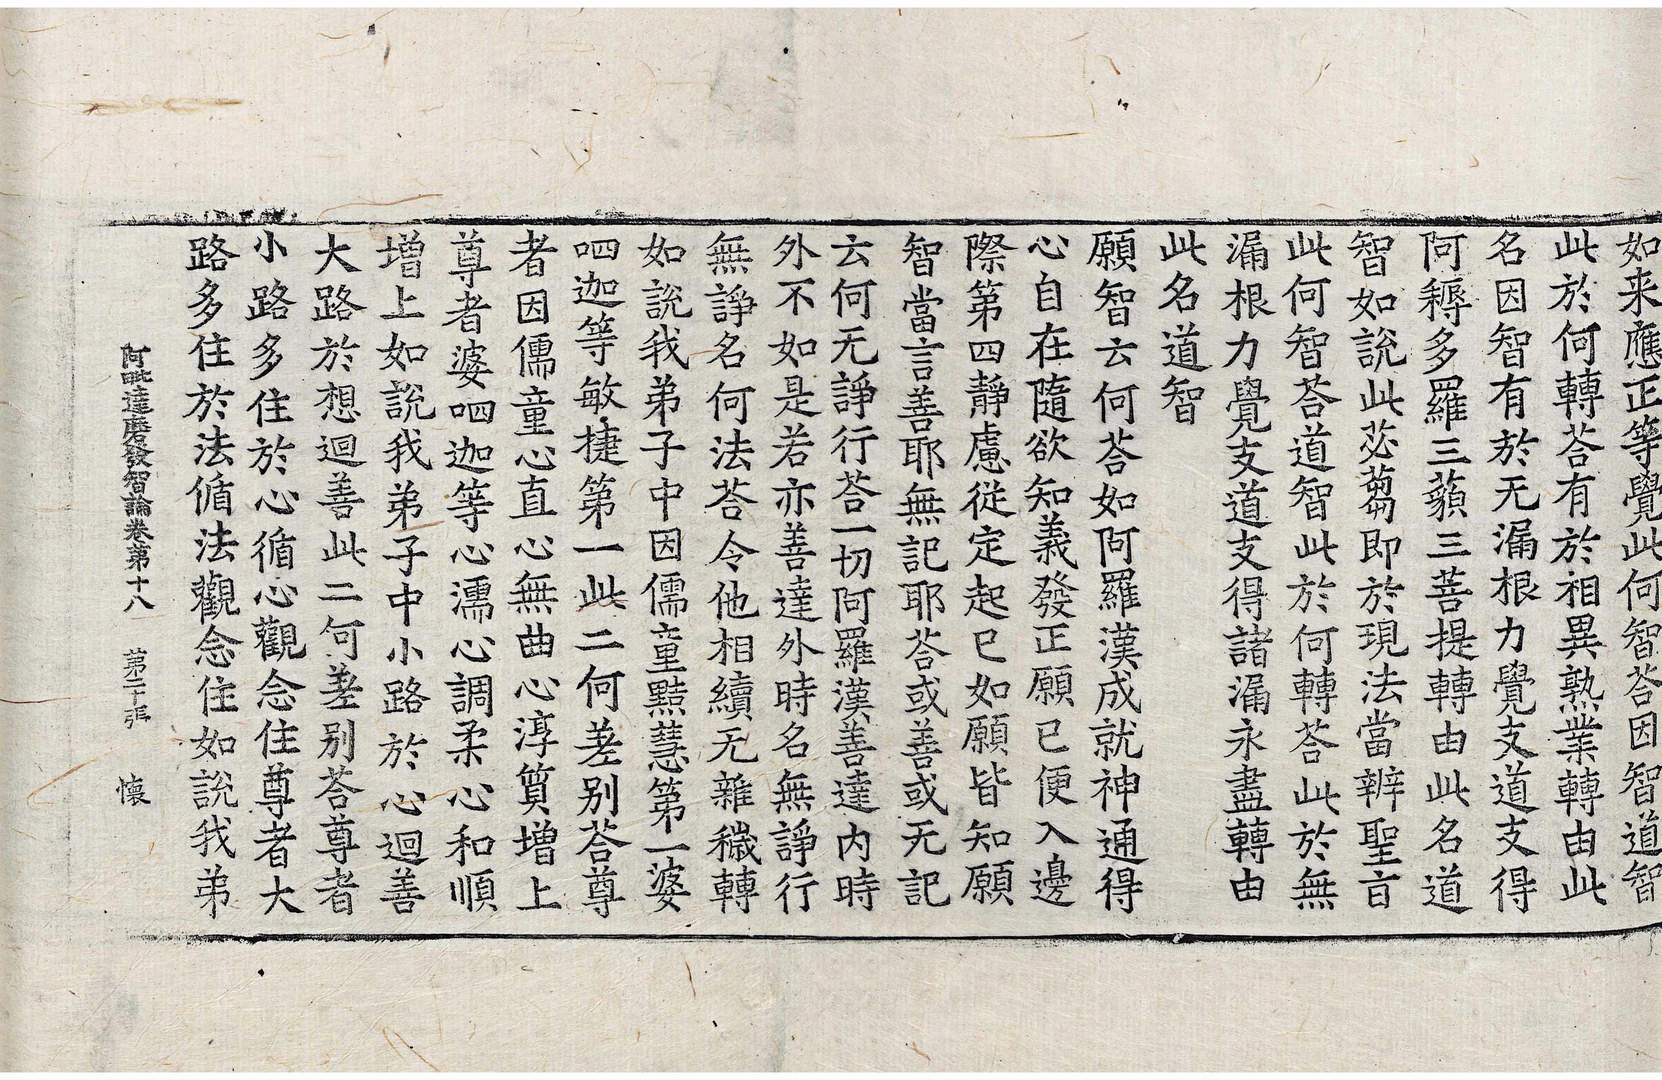 如来應正等覺此何智荅因智道智
此於何轉荅有於相異熟業轉由此
名因智有於无漏根力覺支道支得
阿耨多羅三藐三菩提轉由此名道
智如說此苾蒭即於現法當辦聖旨
此何智荅道智此於何轉荅此於無
漏根力覺支道支得諸漏永盡轉由
此名道智
願智云何荅如阿羅漢成就神通得
心自在隨欲知義發正願已便入邊
際第四靜慮從定起已如願皆知願
智當言善耶無記耶荅或善或无記
云何无諍行荅一切阿羅漢善達內時
外不如是若亦善達外時名無諍行
無諍名何法荅令他相續无雜穢轉
如說我弟子中因儒童黠慧第一婆
呬迦等敏捷第一此二何差別荅尊
者因儒童心直心無曲心淳質增上
尊者婆呬迦等心濡心調柔心和順
增上如說我弟子中小路於心迴善
大路於想迴善此二何差別荅尊者
小路多住於心循心觀念住尊者大
路多住於法循法觀念住如說我弟
阿毗達磨發智論卷第十八 第二十張 懷